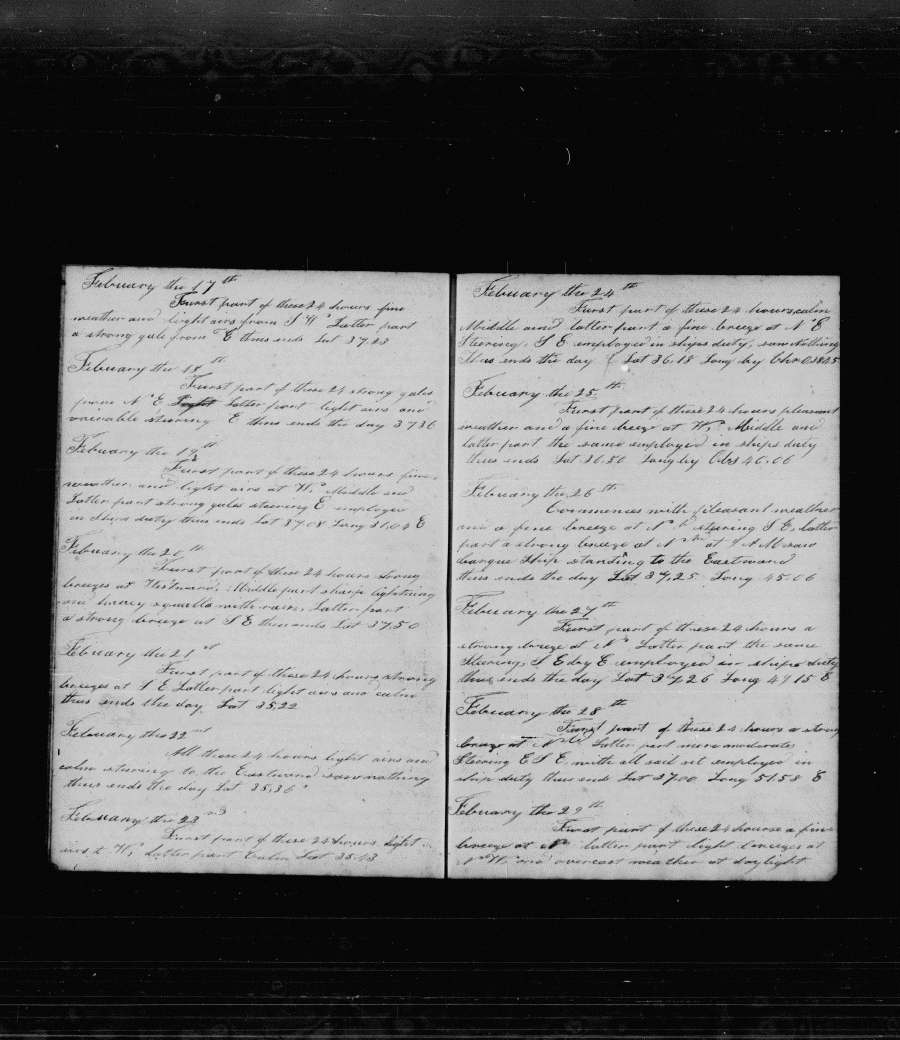 Febuary the 17th
Furst part of these 24 hours fine
weather and light airs from S W. Latter part
a strong gale from E thus ends Lat 37.23
Febuary the 18th
Furst part of these 24 strong gales
from N E latter part light airs and
vairable steering E thus ends the day 3736
Febuary the 19th
Furst part of these 24 hours fine
weather and light airs at W. Middle and
Latter part strong gales steering E employed
in ships duty thus ends Lat 37.08 Long 31.04 E
Febuary the 20th
Furst part of these 24 hours strong
breezes at Westward, Middle part sharp lightning
and heavy squalls with rain, Latter part
a strong breeze at S E thus ends Lat 37.50
Febuary the 21st
Furst part of these 24 hours strong
breezes at S E Latter part light airs and calm
thus ends the day Lat 35.22
Febuary the 22nd
All these 24 hours light airs and
calm steering to the Eastward saw nothing
thus ends the day Lat 35.36
Febuary the 23nd
Furst part of these 24 hours light
airs to W. Latter part Calm Lat 35.43
Febuary the 24th
Furst part of these 24 hours calm
Middle and latter part a fine breeze at N E
Steering. S E employed in ships duty, saw nothing
Thus ends the day Lat 36.18 Long by Chr
Febuary the 25th
Furst part of these 24 hours pleasant
weather and a fine breeze at W. Middle and
latter part the same employed in ships duty
thus ends Lat 36.50 Long by Obs 40.06
Febuary the 26th
Commences with pleasant weather
and a fine breeze at N steering S E, latter
part a strong breeze at N at A M saw
barque Ship standing to the Eastward
thus ends the day Lat 37.25 Long 45.06
Febuary the 27th
Furst part of these 24 hours a
strong breeze at N. Latter part the same
Steering, S E by E employed in ships duty
thus ends the day Lat 37.26 Long 49.15 E
Febuary the 28th
Furst part of these 24 hours a strong
breeze at N W Latter part more moderate,
Steering E S E, with all sail set employed in
ship duty thus ends Lat 37.00 Long 51.58 E
Febuary the 29th
Furst part of these 24 hourse a fine
breeze at N. latter part light breezes at
N W. and overcast weather at daylight